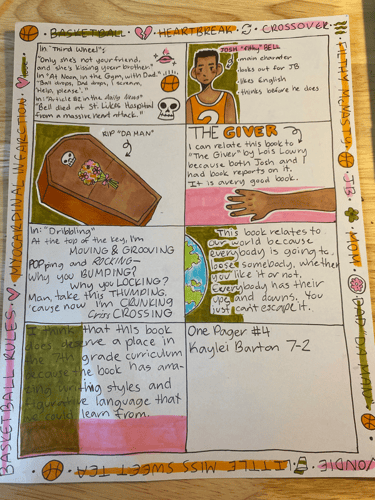 BASKETBALL HEARTBREAK CROSSOVER
FILTHY MCNASTY JB MOM DAD/DA MAN
In "Third Wheel":
"Only she's not your friend,
and she's kissing your brother."
In "At Noon, in the Gym, with Dad"
"Ball drops, Dad drops, I scream,
'Help, please'."
In "Article #2 in the daily
"Bell died at St. Luke's Hospital
from a massive heart attack."
JOSH "Filthy" BELL
main character
looks out for JB
likes English
thinks before he does
RIP "DA MAN"
THE GIVER
I can relate this book to
"The Giver" by Lois Lowry
because both Josh and I
had book reports on it.
It is a very good book.
In: "Dribbling"
At the top of the key, I'm
MOVING & GROOVING
POPping and ROCKING—
Why you BUMPING?
Why you LOCKING?
Man, take this THUMPING.
'cause now I'm CRUNKING
Criss CROSSING
This book relates to
our world because
everybody is going to
loose somebody, whether
you like it or not.
Everybody has their
ups and downs. You
just can't escape it.
I think that this book
does deserve a place in
the 7th grade curriculum
because the book has ama-
zing writing styles and
figurative language that
we could learn from.
One Pager #4
Kaylei Barton 7-2
BASKETBALL RULES MYOCARDINAL INFARCTION
VONDIE LITTLE MISS SWEET TEA